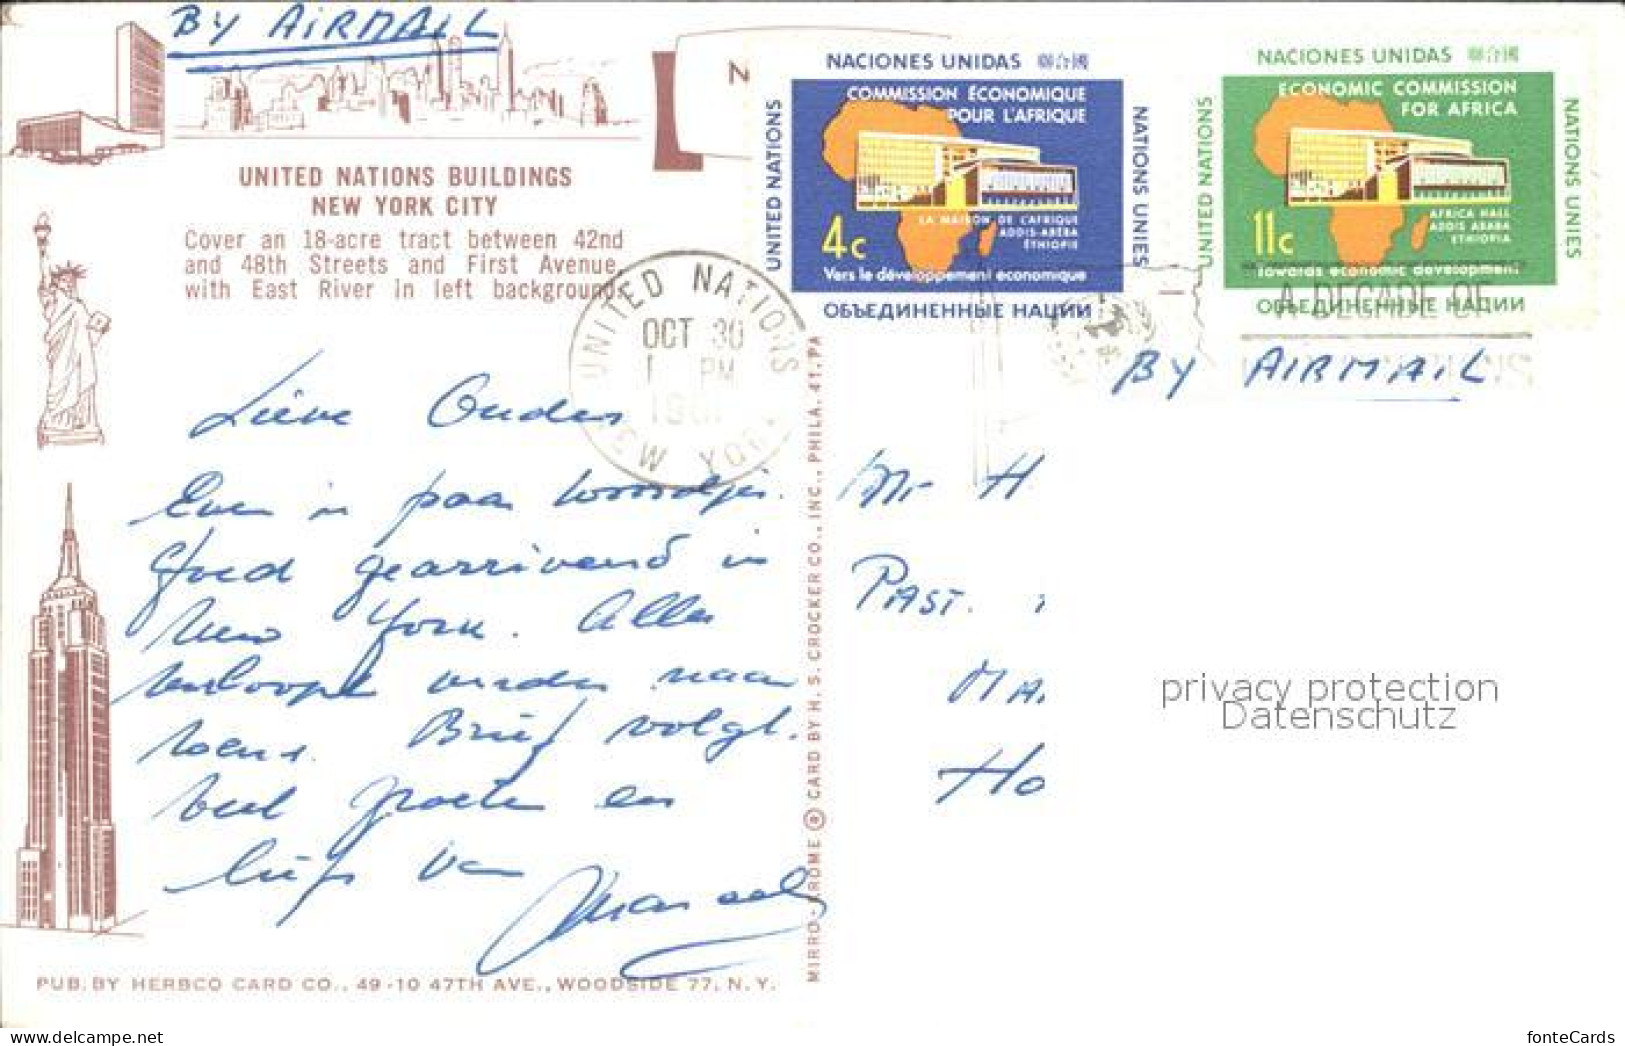 BY AIRMAIL
N
UNITED NATIONS BUILDINGS
NEW YORK CITY
Cover an 18-acre tract between 42nd
and 48th Streets and First Avenue
with East River in left background
UNITED NATIONS
OCT 30
PM
NEW YORK
NACIONES UNIDAS 聯合國
UNITED NATIONS
COMMISSION ÉCONOMIQUE
POUR L'AFRIQUE
NATIONS UNIES
4c
LA MAISON DE L'AFRIQUE
ADDIS-ABÉBA
ÉTHIOPIE
Vers le développement economique
ОБЪЕДИНЕННЫЕ НАЦИИ
NACIONES UNIDAS 聯合國
UNITED NATIONS
ECONOMIC COMMISSION
FOR AFRICA
NATIONS UNIES
11c
AFRICA HALL
ADDIS ABABA
ETHIOPIA
Towards economic development
ОБЪЕДИНЕННЫЕ НАЦИИ
A DECADE OF
BY AIRMAIL
Lieve Ouders
Even 'n paar woordjes.
Goed gearriveerd in
New York. Alles
verloopt verder naar
wens. Brief volgt.
Veel groeten en
liefs van
Marcel
Mr H.
PAST.
MA.
HO
MIRRO-KROME ® CARD BY H. S. CROCKER CO., INC., PHILA. 41, PA
PUB. BY HERBCO CARD CO., 49-10 47TH AVE., WOODSIDE 77, N. Y.
privacy protection
Datenschutz
www.delcampe.net
fonteCards